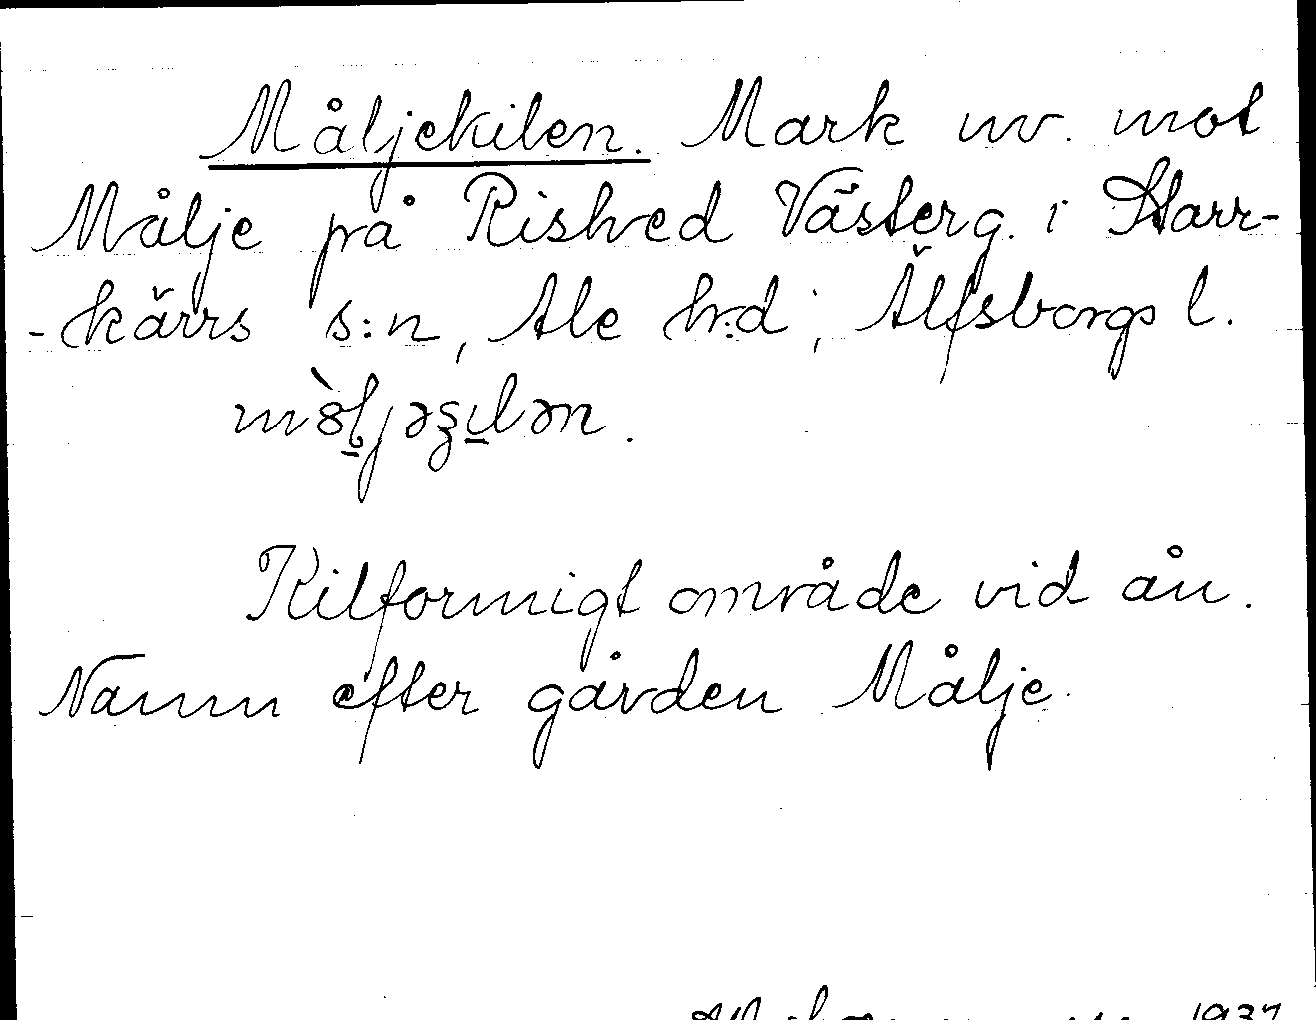 Måljekilen. Mark nv. mot
Målje på Rished Västerg. i Starr-
-kärrs s:n, Ale h:d, Älfsborgs l.
mòljəʂılən.
Kilformigt område vid ån.
Namn efter gården Målje.
1937